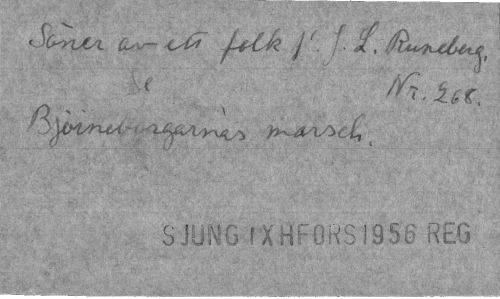 Söner av ett folk f. J. L. Runeberg.
se Nr. 268.
Björneborgarnas marsch.
SJUNG IXHFORS1956 REG